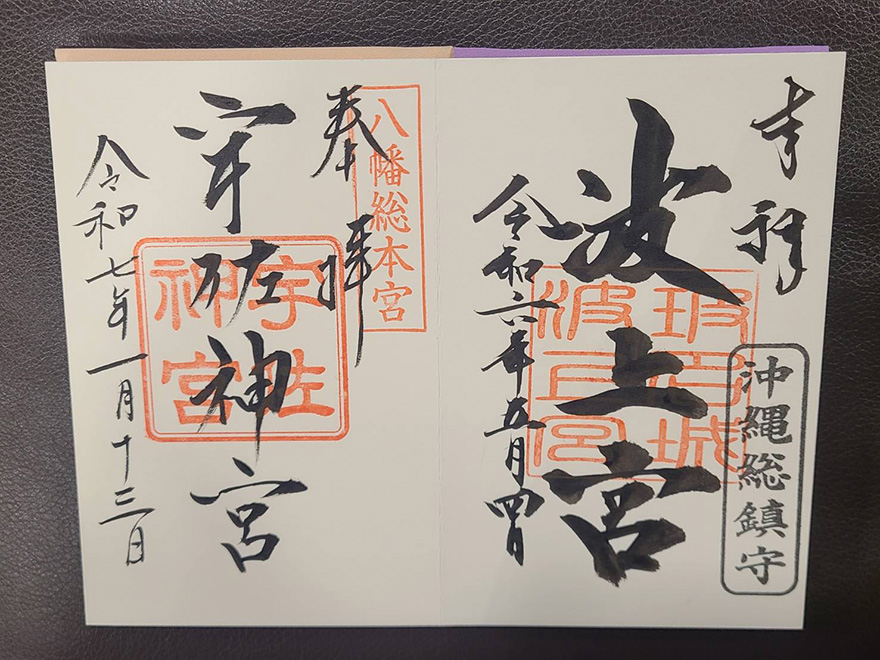 奉拝
沖縄総鎮守
波上宮
波上宮
令和六年五月四日
八幡総本宮
奉拝
宇佐神宮
宇佐
神宮
令和七年一月十三日